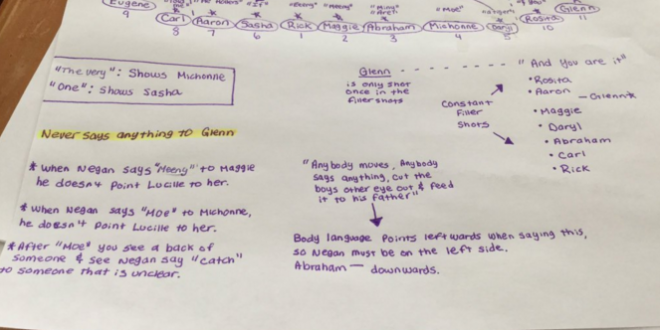 Eugene
Carl Aaron Sasha Rick Maggie Abraham Michonne Daryl Rosita Glenn
9 8 7 6 1 2 3 4 5 10 11
"The very": Shows Michonne
"One": Shows Sasha
Never says anything to Glenn
* When Negan says "Meeny" to Maggie
he doesn't point Lucille to her.
* When Negan says "MOE" to Michonne,
he doesn't point Lucille to her.
* After "MOE" you see a back of
someone & see Negan say "catch"
to someone that is unclear.
Glenn
is only shot
once in the
filler shots
Constant
Filler
Shots
"And you are it"
• Rosita
• Aaron
— Glenn*
• Maggie
• Daryl
• Abraham
• Carl
• Rick
"Anybody moves, Anybody
says anything, cut the
boys other eye out & feed
it to his father"
Body language points leftwards when saying this,
so Negan must be on the left side.
Abraham — downwards.